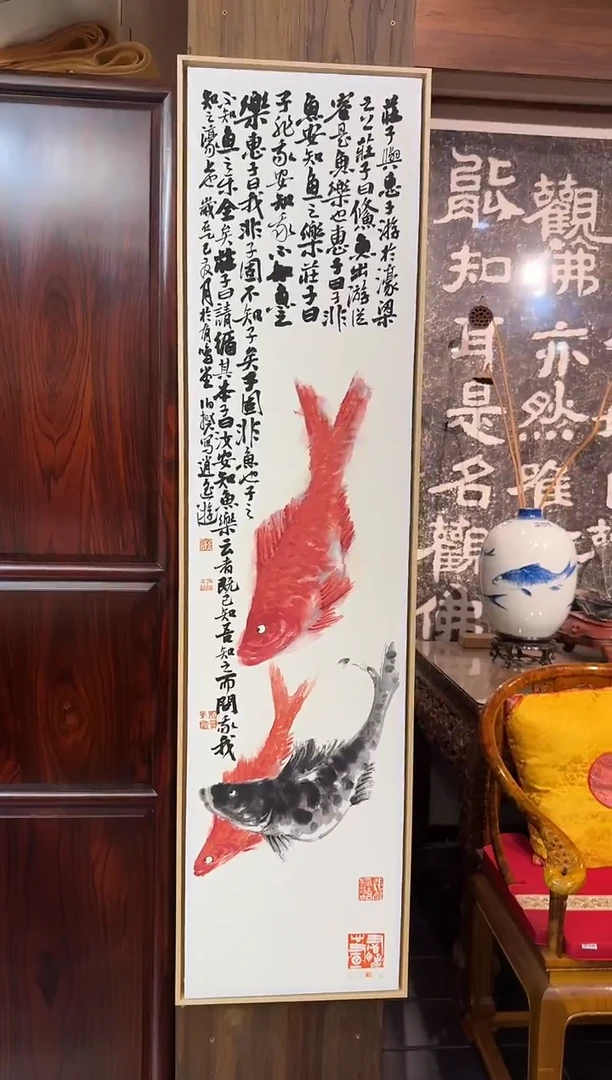 莊子與惠子游於濠梁
之上莊子曰鯈魚出游從
容是魚樂也惠子曰子非
魚安知魚之樂莊子曰
子非我安知我不知魚之
樂惠子曰我非子固不知子矣子固非魚也子之
不知魚之樂全矣莊子曰請循其本子曰汝安知魚樂云者既已知吾知之而問我我
知之濠上也歲在乙巳月於有堂伯寫逍遙遊
觀佛亦然唯
能知耳是名觀佛